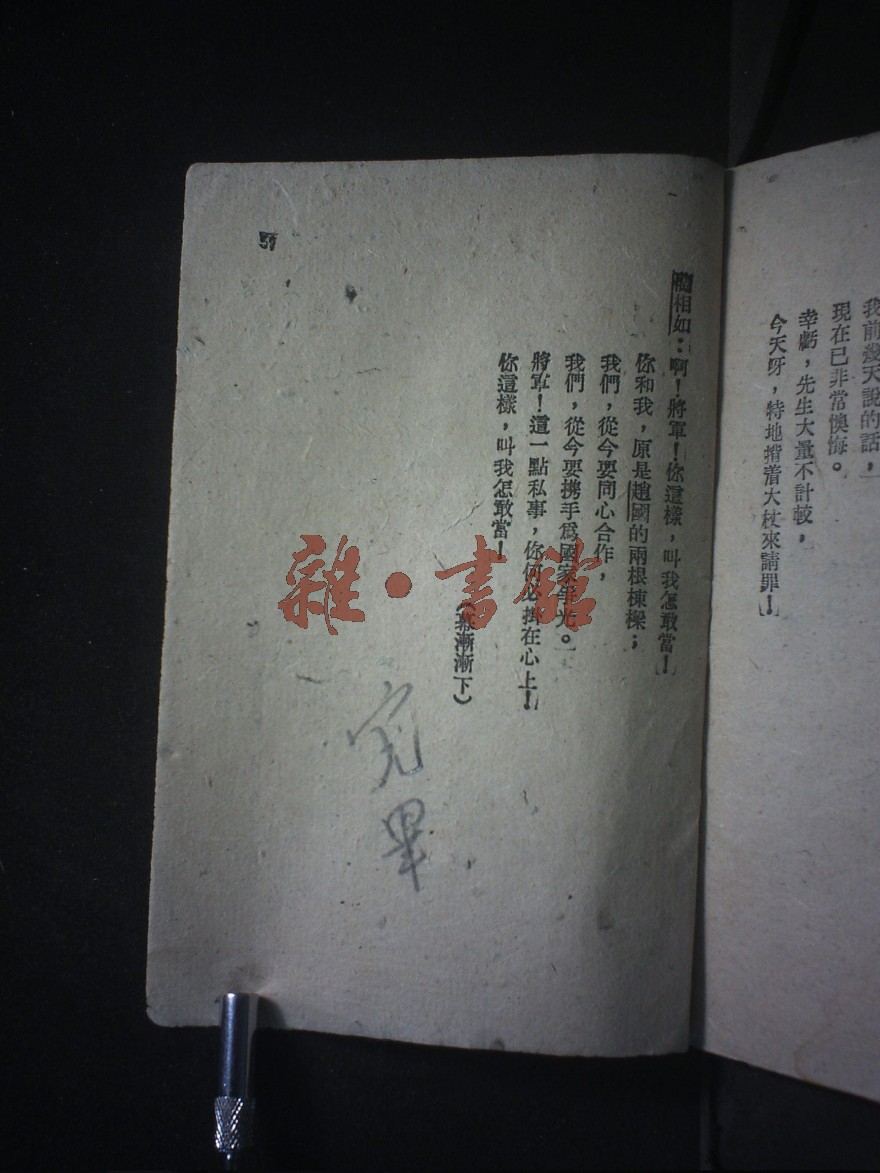 我前幾天說的話，
現在已非常懊悔。
幸虧，先生大量不計較，
今天呀，特地揹着大杖來請罪！」
藺相如：「啊！將軍！你這樣，叫我怎敢當！」
你和我，原是趙國的兩根棟樑；
我們，從今要同心合作，
我們，從今要携手爲國家爭光。」
將軍！這一點私事，你何必掛在心上！」
你這樣，叫我怎敢當！
（幕漸漸下）
完畢
雜·書館